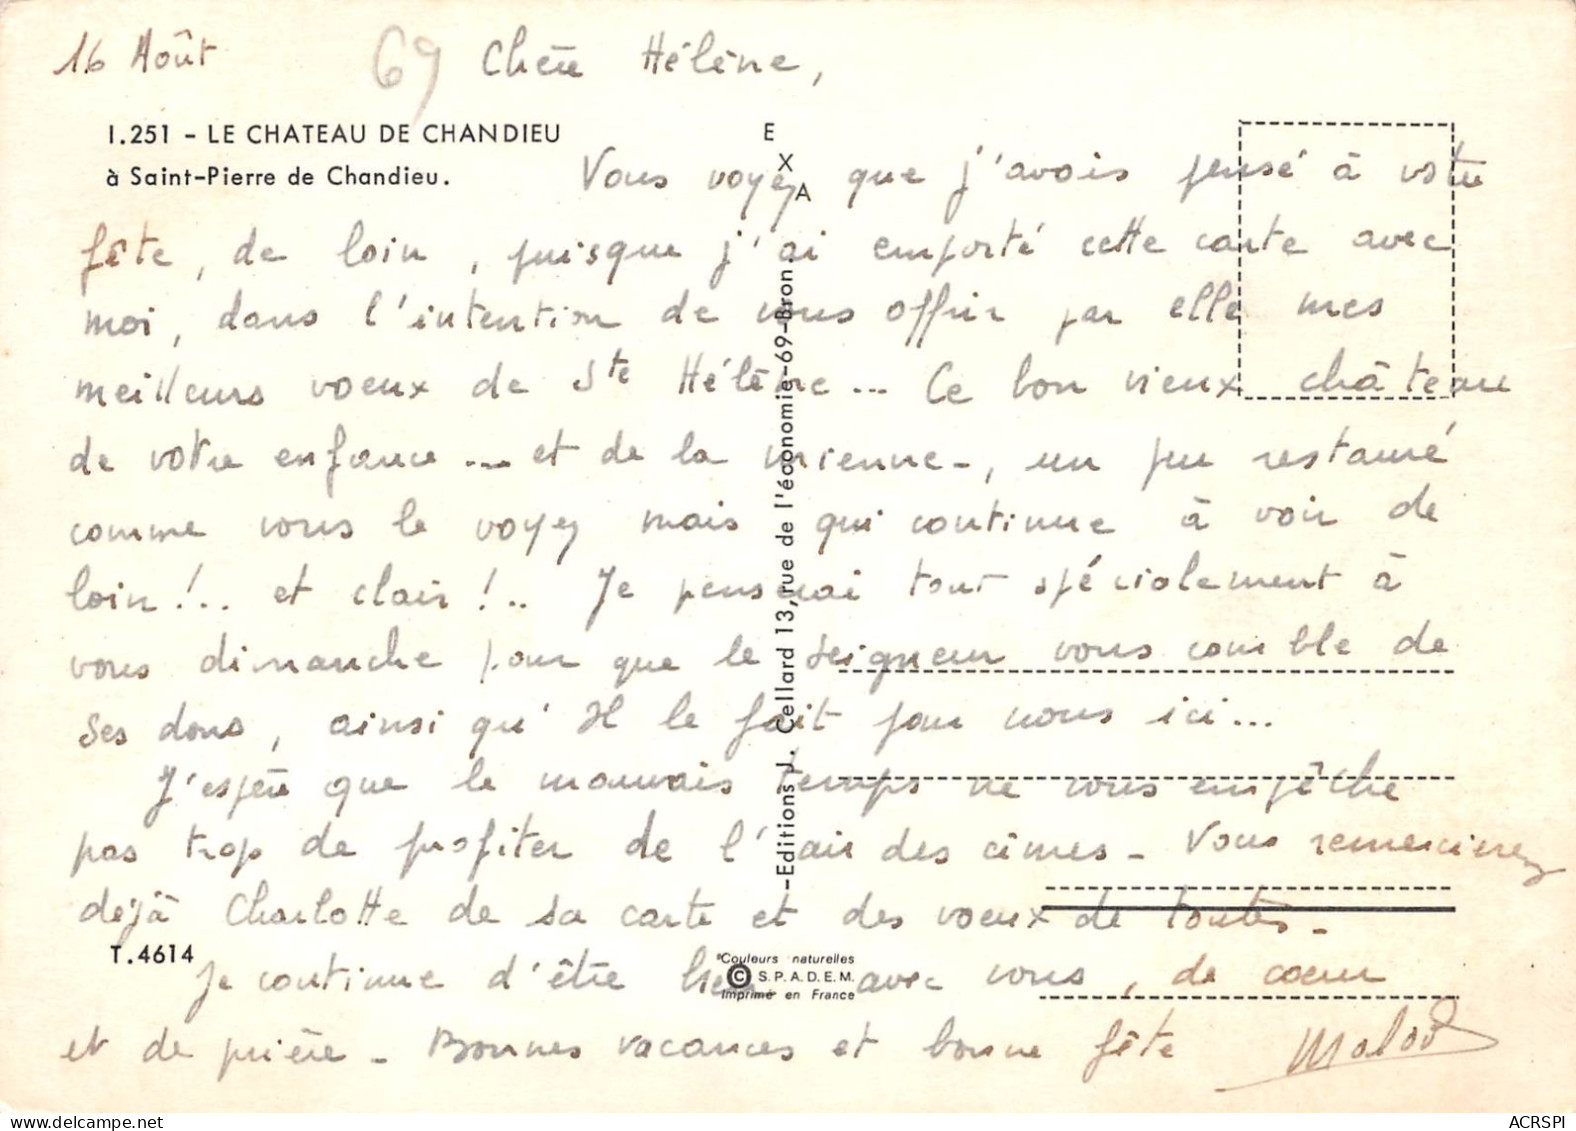 16 Août 69 Chère Hélène,
I.251 - LE CHATEAU DE CHANDIEU
à Saint-Pierre de Chandieu.
EXA
Vous voyez que j'avais pensé à votre
fête, de loin, puisque j'ai emporté cette carte avec
moi, dans l'intention de vous offrir par elle mes
meilleurs voeux de Ste Hélène... Ce bon vieux château
de votre enfance... et de la mienne-, un peu restauré
comme vous le voyez mais qui continue à voir de
loin!.. et clair!.. Je penserai tout spécialement à
vous dimanche pour que le Seigneur vous comble de
ses dons, ainsi qu'Il le fait pour nous ici...
J'espère que le mauvais temps ne vous empêche
pas trop de profiter de l'air des cimes - Vous remercierez
déjà Charlotte de sa carte et des voeux de toutes -
Je continue d'être bien avec vous, de coeur
et de prière - Bonnes vacances et bonne fête Malou
-Editions J. Cellard 13, rue de l'économie-69-Bron
T.4614
*Couleurs naturelles
© S.P.A.D.E.M.
Imprimé en France
ACRSPI